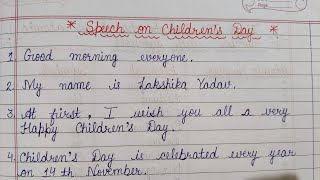 * Speech on Children's Day *
1. Good morning everyone.
2. My name is Lakshika Yadav.
3. At first, I wish you all a very
Happy Children's Day.
4. Children's Day is celebrated every year
on 14th November.